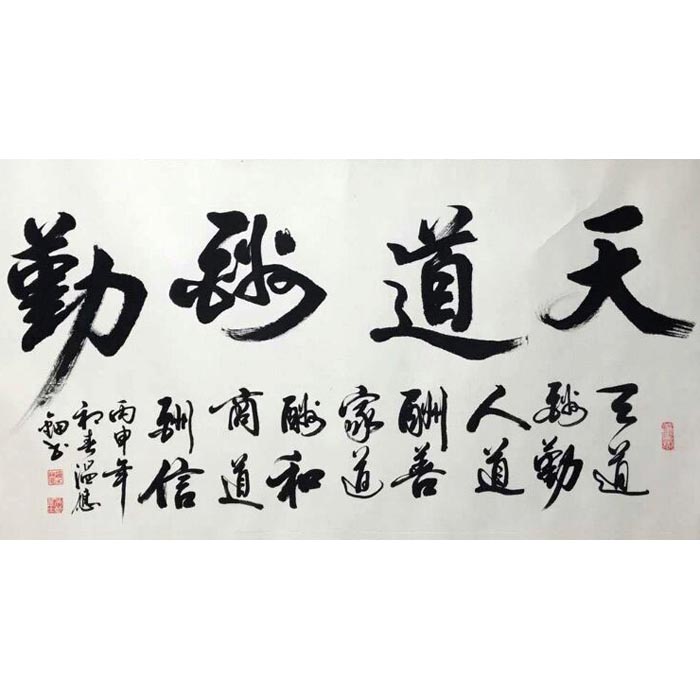 天道酬勤
天道
酬勤
人道
酬善
家道
酬和
商道
酬信
丙申年
初春温
书